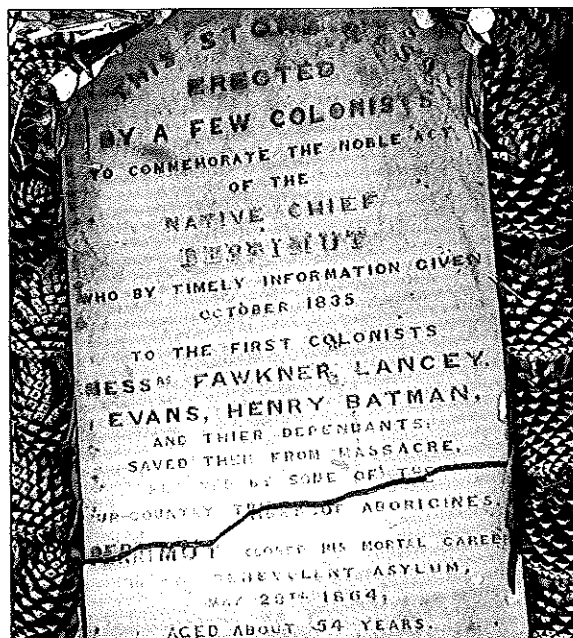 THIS STONE
ERECTED
BY A FEW COLONISTS
TO COMMEMORATE THE NOBLE ACT
OF THE
NATIVE CHIEF
DERRIMUT
WHO BY TIMELY INFORMATION GIVEN
OCTOBER 1835
TO THE FIRST COLONISTS
MESSRS FAWKNER, LANCEY,
EVANS, HENRY BATMAN,
AND THIER DEPENDANTS,
SAVED THEM FROM MASSACRE,
BY SOME OF THE
UP-COUNTRY TRIBES OF ABORIGINES.
DERRIMUT CLOSED HIS MORTAL CAREER
BENEVOLENT ASYLUM,
MAY 28TH 1864;
AGED ABOUT 54 YEARS.